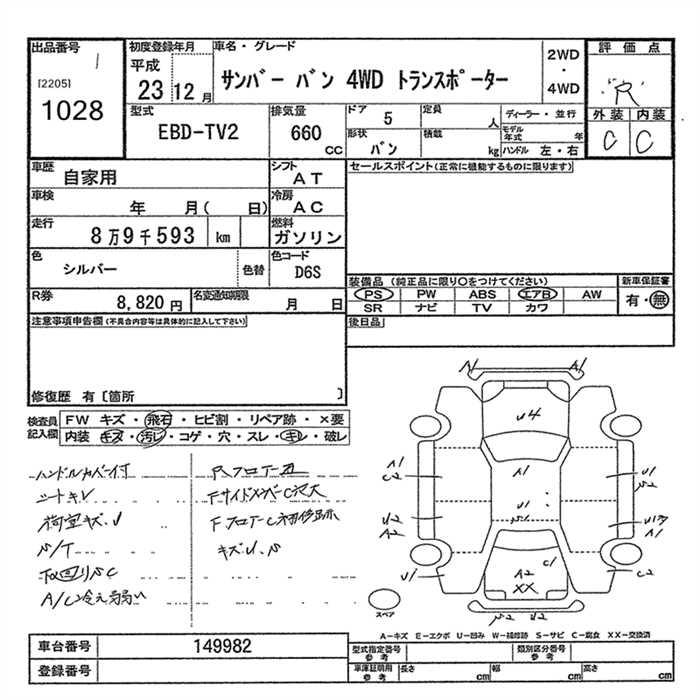 出品番号
[2205]
1028
初度登録年月
平成
23 12月
車名・グレード
サンバー バン 4WD トランスポーター
2WD
・
4WD
評価点
R
外装 内装
C C
型式
EBD-TV2
排気量
660
cc
ドア
5
定員
人
形状
バン
積載
kg
ディーラー・並行
モデル年式 年
ハンドル 左・右
車歴
自家用
シフト
AT
車検
年 月( 日)
冷房
AC
走行
8万9千593 km
燃料
ガソリン
色
シルバー
色替
色コード
D6S
R券
8,820円
名変通知期限
月 日
セールスポイント(正常に機能するものに限ります)
装備品 (純正品に限り○をつけてください)
PS PW ABS エアB AW
SR ナビ TV カワ
新車保証書
有・無
後日品
注意事項申告欄(不具合内容等は具体的に記入して下さい)
修復歴 有〔箇所 〕
検査員記入欄
FW キズ・飛石・ヒビ割・リペア跡・×要
内装 キズ・汚レ・コゲ・穴・スレ・キレ・破レ
ハンドルカバー付
シートキレ
荷室キズ、U
A/C冷え弱い
キズ、U、S
A1
U4
A1
A1
C2
U2
A2
U1
U1
C1
A2
XX
C2
スペア
A-キズ E-エクボ U-凹み W-補修跡 S-サビ C-腐食 XX-交換済
車台番号
149982
登録番号
型式指定番号
参考
類別区分番号
参考
車庫証明用
参考
長さ cm
幅 cm
高さ cm